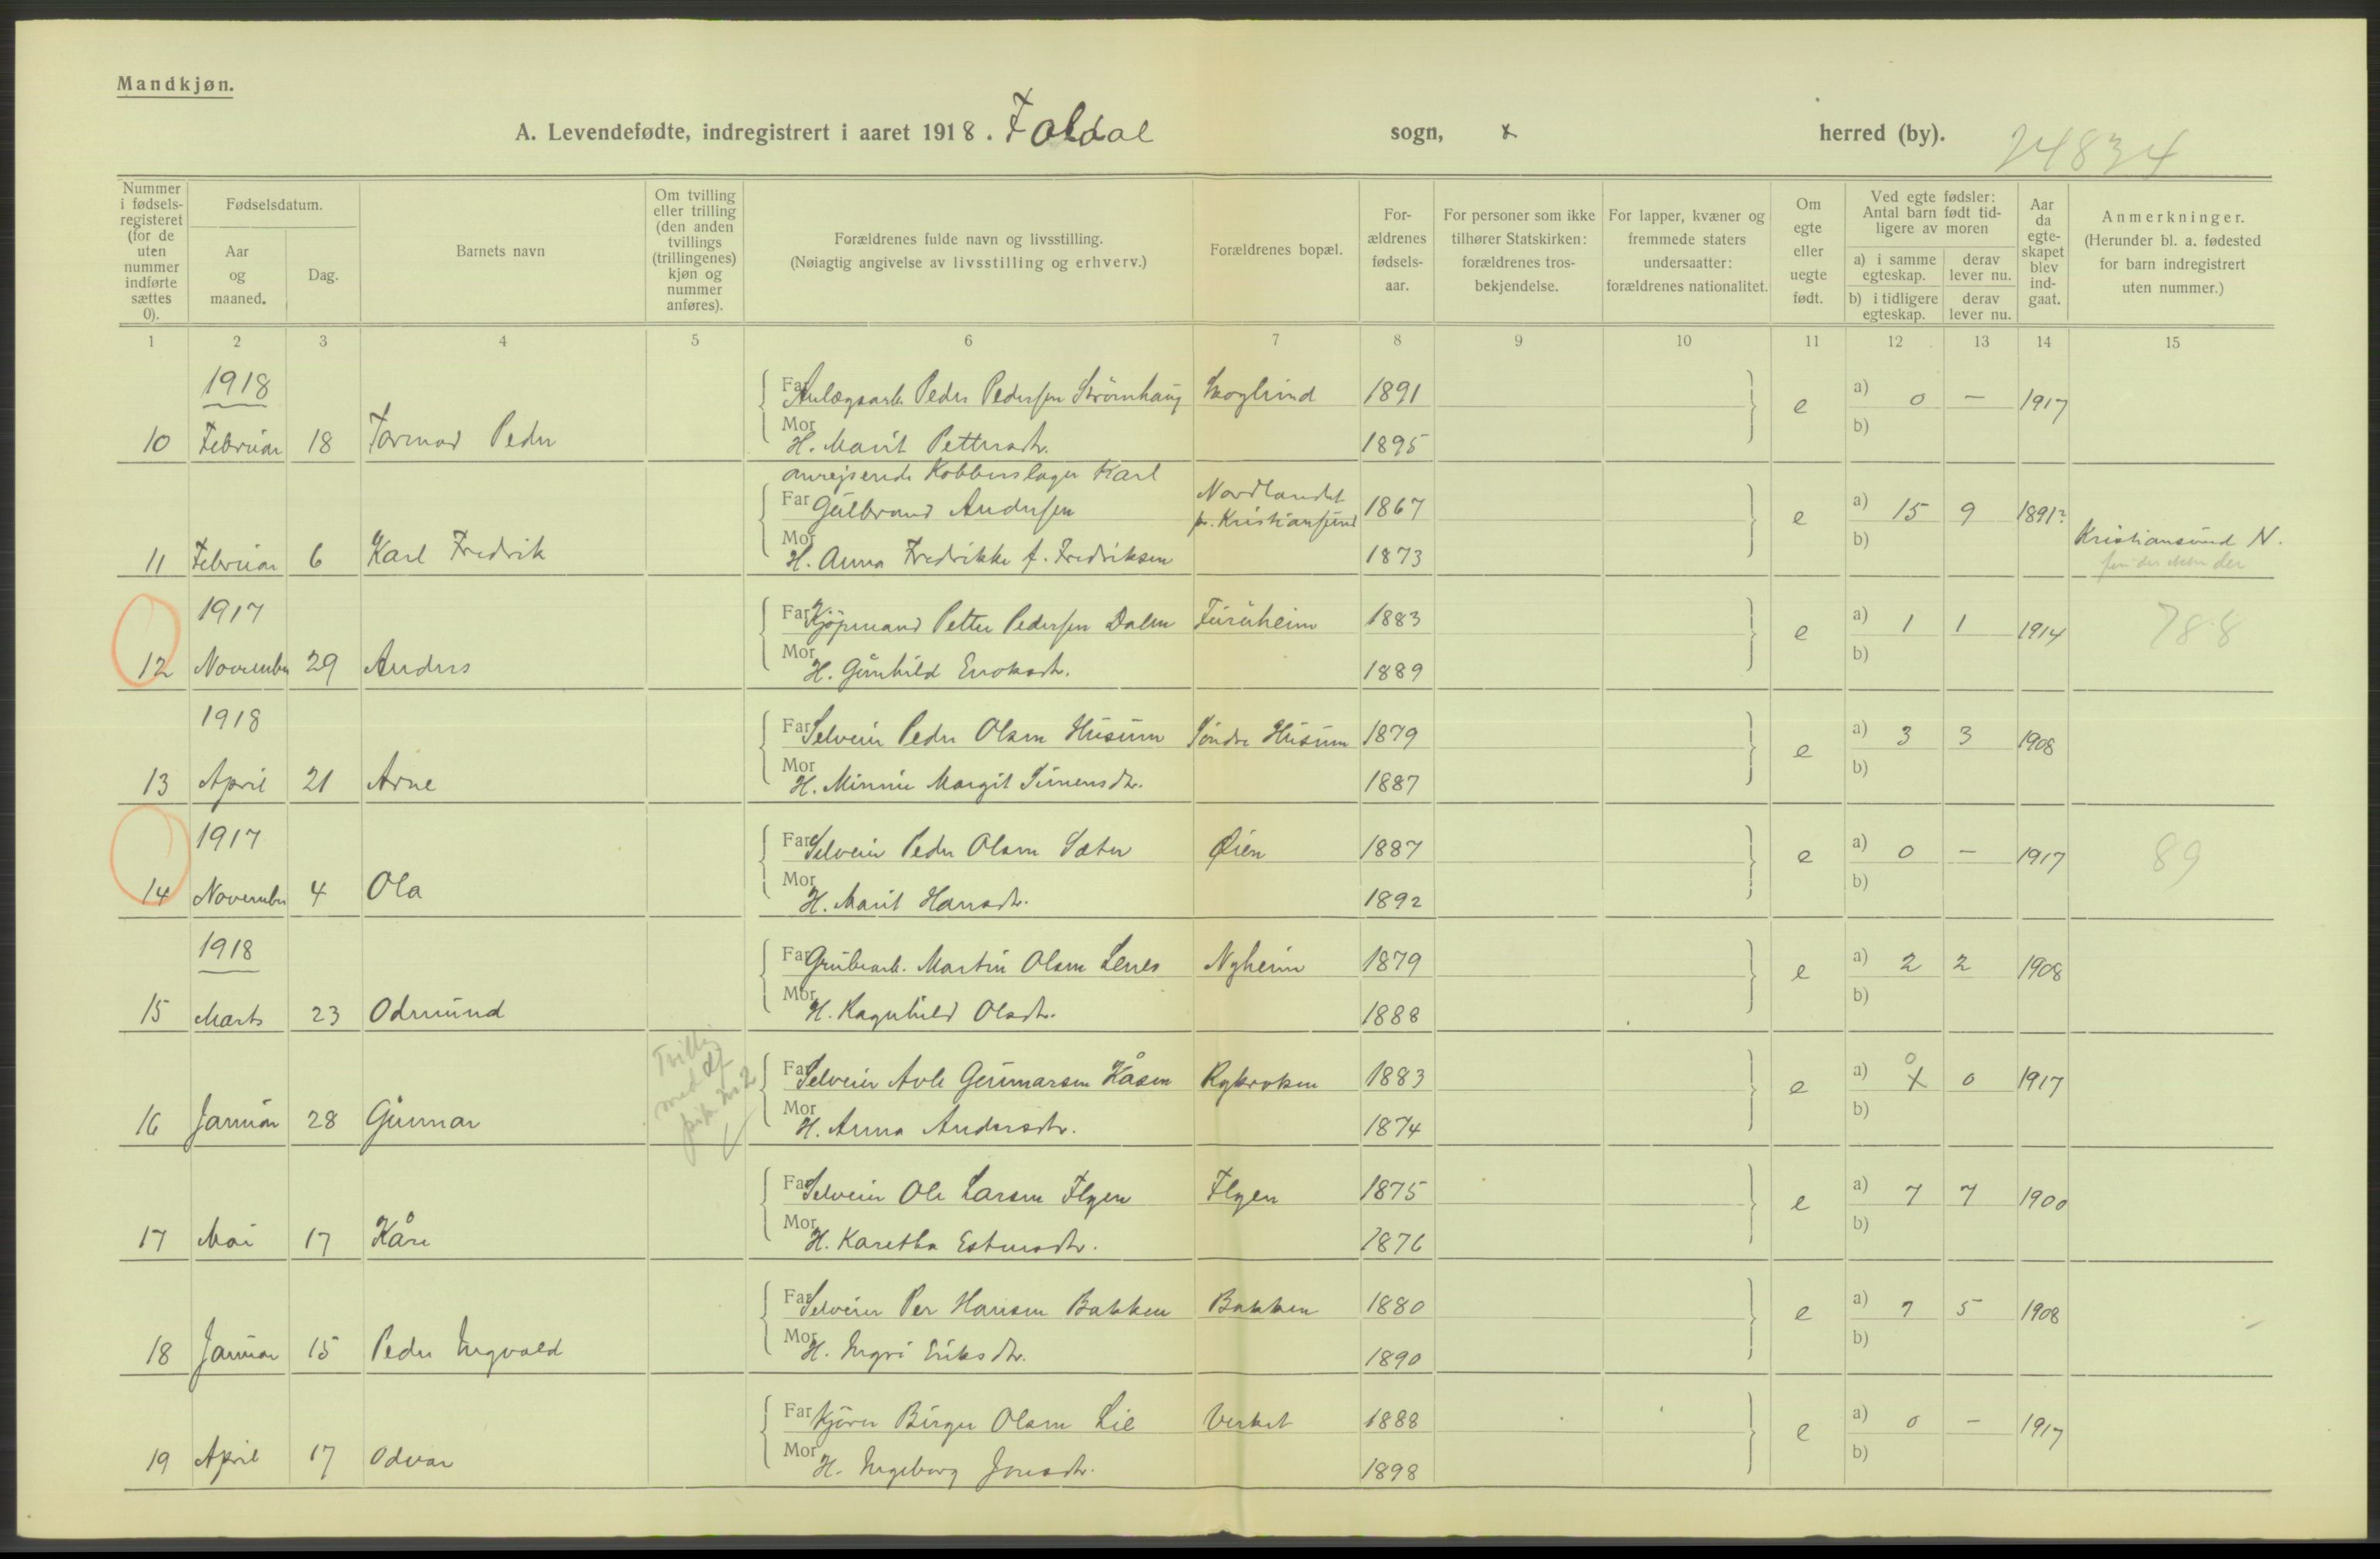 Mandkjøn.
A. Levendefødte, indregistrert i aaret 1918. Foldal sogn, x herred (by).
24834
Nummer i fødsels-registeret (for de uten nummer indførte sættes 0).
Fødselsdatum.
Aar og maaned.
Dag.
Barnets navn
Om tvilling eller trilling (den anden tvillings (trillingenes) kjøn og nummer anføres).
Forældrenes fulde navn og livsstilling.
(Nøiagtig angivelse av livsstilling og erhverv.)
Forældrenes bopæl.
For-ældrenes fødsels-aar.
For personer som ikke tilhører Statskirken: forældrenes tros-bekjendelse.
For lapper, kvæner og fremmede staters undersaatter: forældrenes nationalitet.
Om egte eller uegte født.
Ved egte fødsler: Antal barn født tid-ligere av moren
a) i samme egteskap. derav lever nu.
b) i tidligere egteskap. derav lever nu.
Aar da egte-skapet blev ind-gaat.
Anmerkninger.
(Herunder bl. a. fødested for barn indregistrert uten nummer.)
1 2 3 4 5 6 7 8 9 10 11 12 13 14 15
1918
Far Anlægsarb. Peder Pedersen Strömhaug Skoglund 1891 e a) 0 — 1917
b)
10 Februar 18 Tormod Peder Mor H. Marit Pettersdtr. 1895
omreisende Kobberslager Karl
Far Gulbrand Andersen Nordlandet pr. Kristiansund 1867 e a) 15 9 1891?
b)
11 Februar 6 Karl Fredrik Mor H. Anna Fredrikke f. Fredriksen 1873 Kristiansund N.
1917
Far Kjöpmand Petter Pedersen Dalen Furuheim 1883 e a) 1 1 1914 788
b)
12 November 29 Anders Mor H. Gunhild Enoksdtr. 1889
1918
Far Selveier Peder Olsen Husum Söndre Husum 1879 e a) 3 3 1908
b)
13 April 21 Arne Mor H. Minnie Margit Simensdtr. 1887
1917
Far Selveier Peder Olsen Sæter Øien 1887 e a) 0 — 1917 89
b)
14 November 4 Ola Mor H. Marit Hansdtr. 1892
1918
Far Grubearb. Martin Olsen Lenes Nyheim 1879 e a) 2 2 1908
b)
15 Marts 23 Odmund Mor H. Ragnhild Olsdtr. 1888
Tvilling med df pike No 2
Far Selveier Avle Gunnarsen Kåsen Rykroken 1883 e a) 0 x 0 1917
b)
16 Januar 28 Gunnar Mor H. Anna Andersdtr. 1874
Far Selveier Ole Larsen Flyen Flyen 1875 e a) 7 7 1900
b)
17 Mai 17 Kåre Mor H. Karetha Estensdtr. 1876
Far Selveier Per Hansen Bakken Bakken 1880 e a) 7 5 1908
b)
18 Januar 15 Peder Ingvald Mor H. Ingri Eriksdtr. 1890
Far Kjörer Birger Olsen Lie Verket 1888 e a) 0 — 1917
b)
19 April 17 Odvar Mor H. Ingeborg Jonsdtr. 1898